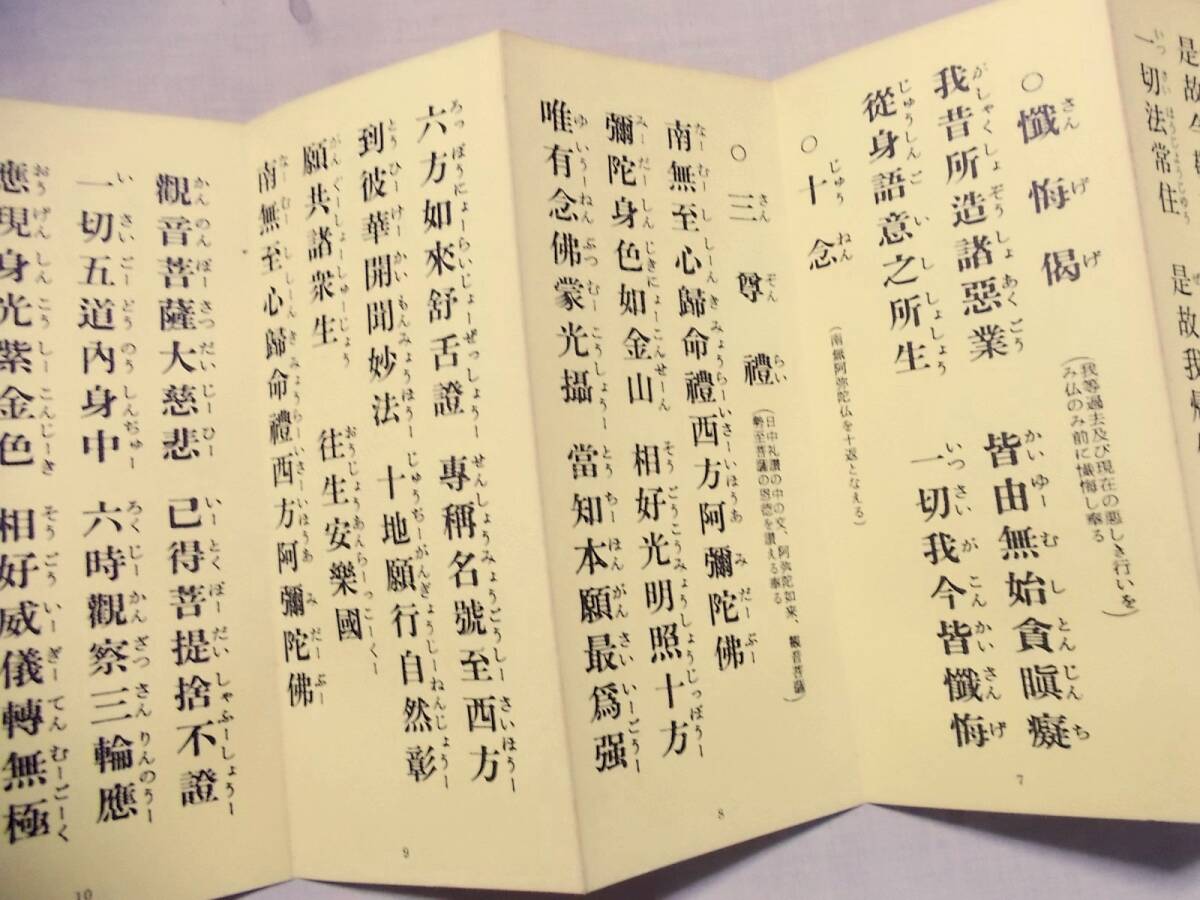 是故今
一切法常住　是故我
○懺悔偈
（我等過去及び現在の悪しき行いを
み仏のみ前に懺悔し奉る）
我昔所造諸惡業　皆由無始貪瞋癡
從身語意之所生　一切我今皆懺悔
○十念
（南無阿弥陀仏を十返となえる）
7
○三尊禮
（日中礼讃の中の文、阿弥陀如来、観音菩薩
勢至菩薩の恩徳を讃える奉る）
南無至心歸命禮西方阿彌陀佛
彌陀身色如金山　相好光明照十方
唯有念佛蒙光攝　當知本願最爲强
8
六方如來舒舌證　專稱名號至西方
到彼華開聞妙法　十地願行自然彰
願共諸衆生　往生安樂國
南無至心歸命禮西方阿彌陀佛
9
觀音菩薩大慈悲　已得菩提捨不證
一切五道內身中　六時觀察三輪應
應現身光紫金色　相好威儀轉無極
10